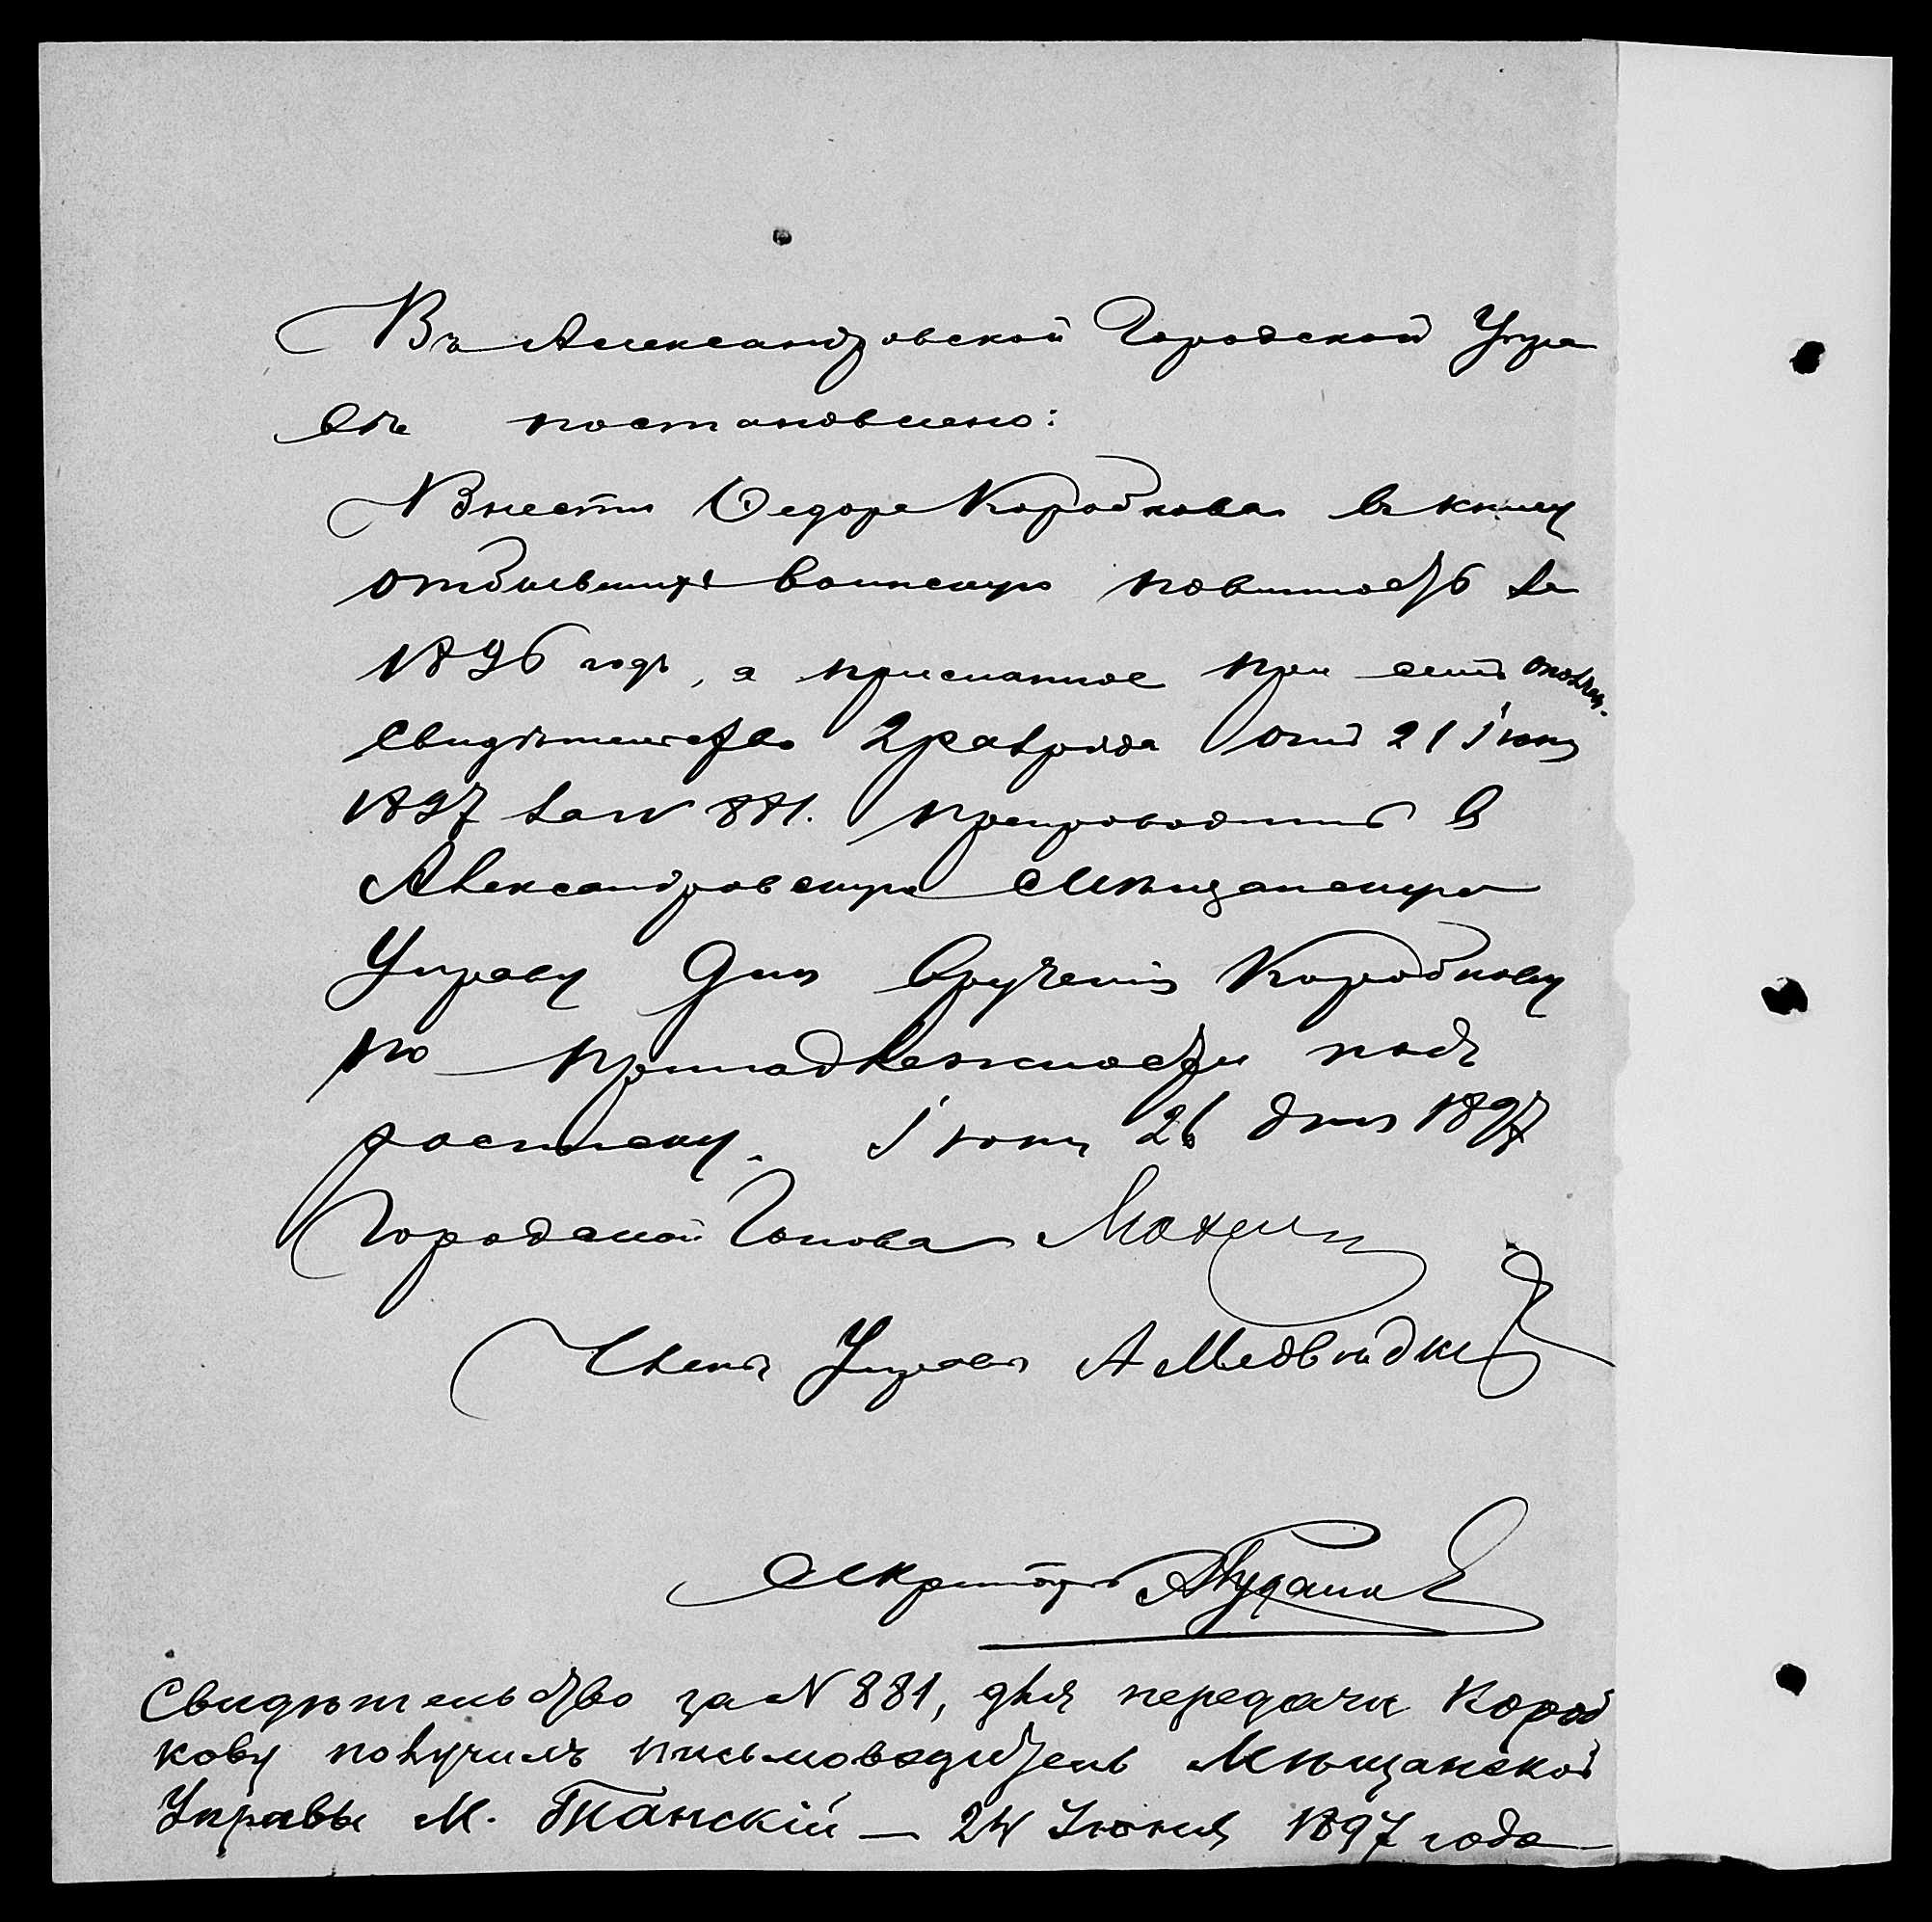 Въ Александровской Городской Упра
вѣ постановлено:
Внести Ѳедора Коробкова въ книгу
отбывшихъ воинскую повинность за
1896 годъ, а присланное при семъ ополчен.
свидѣтельство 2 разряда отъ 21 Іюня
1897 за № 881. препроводить в
Александровскую Мѣщанскую
Управу для врученія Коробкову
по принадлежности подъ
росписку. Іюня 26 дня 1897
Городской Голова
Членъ Управы А Медвѣд
Секретарь
Свидѣтельство за № 881, для передачи Короб
кову получилъ письмоводитель Мѣщанской
Управы М. Танскій — 24 Іюня 1897 года